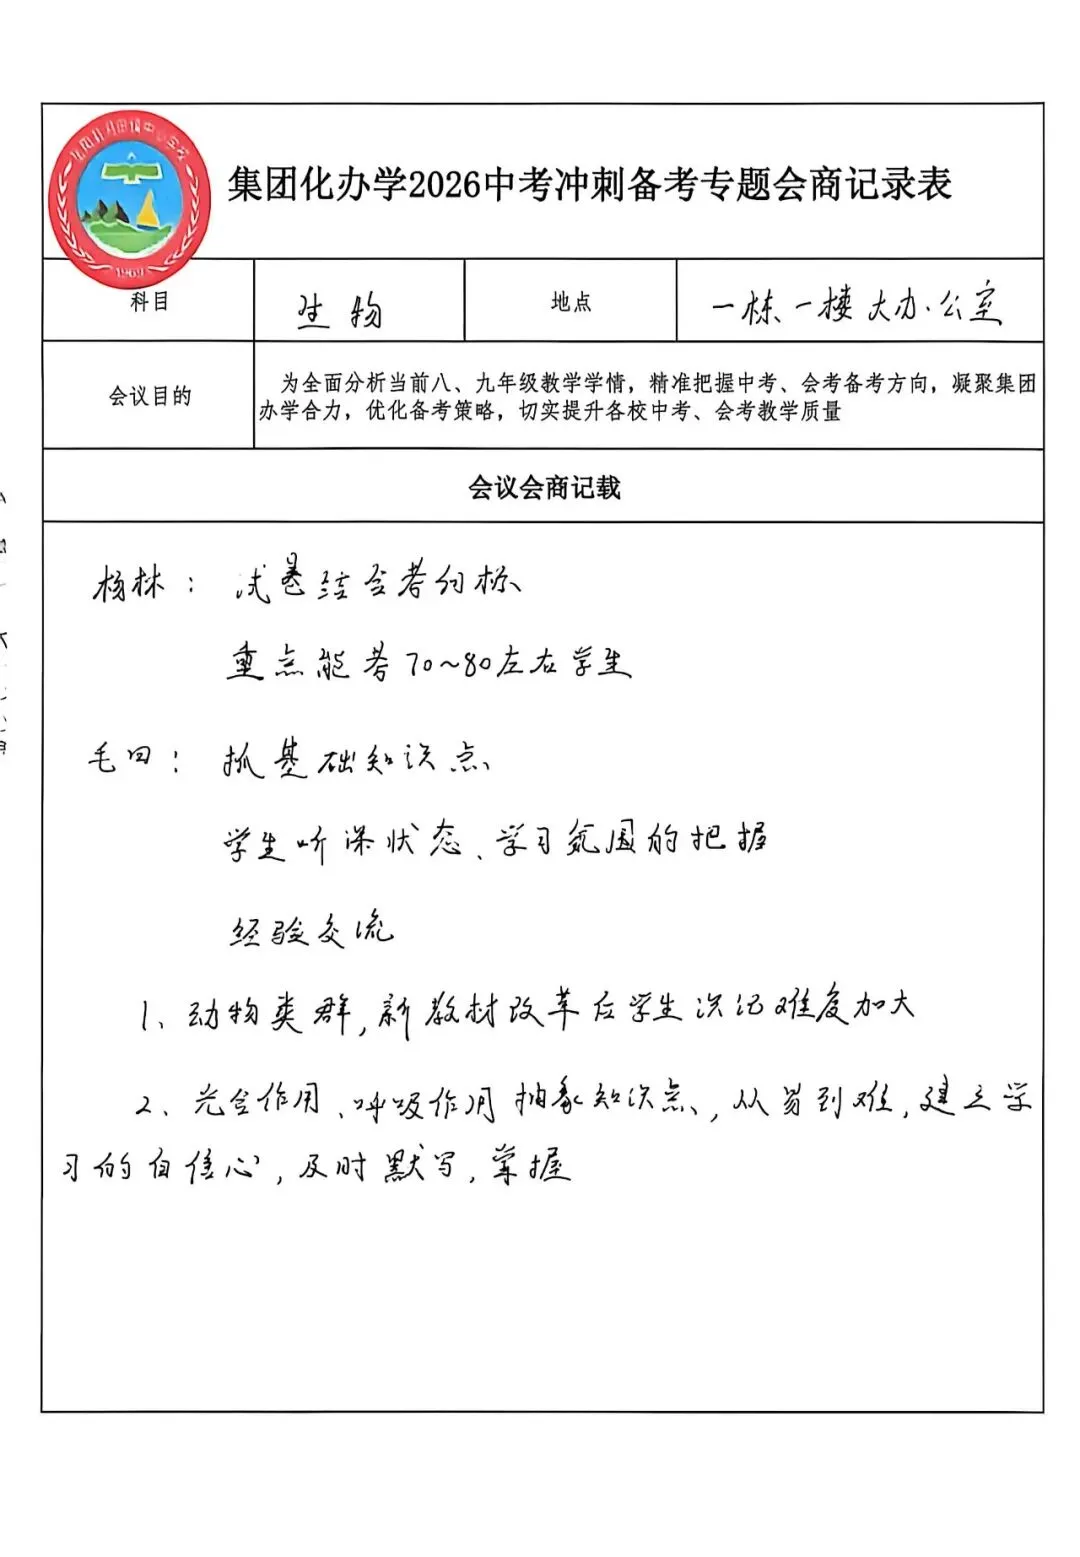 集团化办学2026中考冲刺备考专题会商记录表
1969
科目
生物
地点
一栋一楼大办公室
会议目的
为全面分析当前八、九年级教学学情，精准把握中考、会考备考方向，凝聚集团
办学合力，优化备考策略，切实提升各校中考、会考教学质量
会议会商记载
杨林：试卷结合考纲标
重点能考70~80左右学生
毛田：抓基础知识点
学生听课状态、学习氛围的把握
经验交流
1、动物类群，新教材改革后学生识记难度加大
2、光合作用、呼吸作用抽象知识点，从易到难，建立学
习的自信心，及时默写，掌握